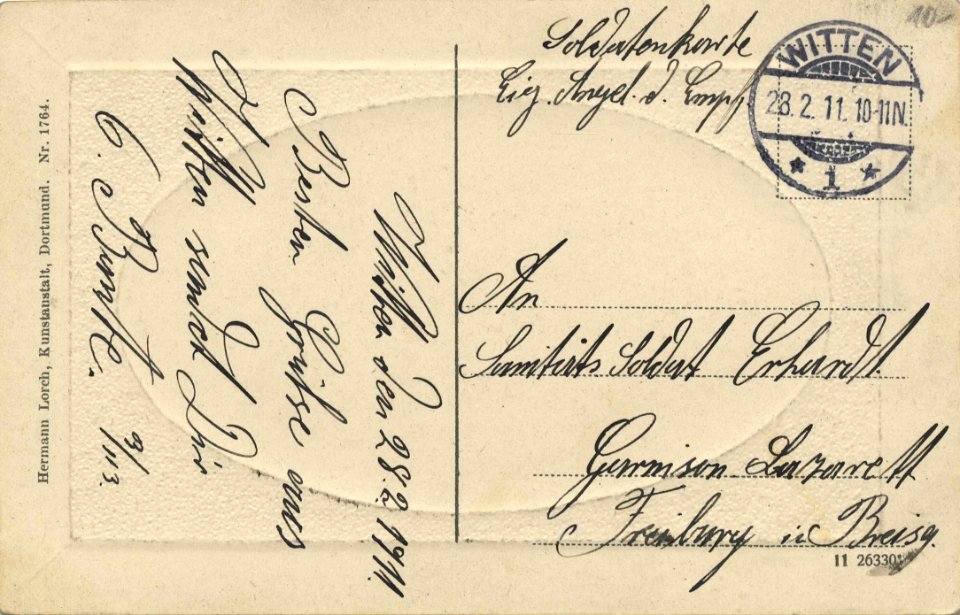 10-
Soldatenkarte
Eig. Angel. d. Empf
WITTEN
28.2.11. 10-11N.
* 1 *
An
Sanitäts Soldat Erhardt
Garnison-Lazarett
Freiburg i. Breisg.
11 26330
Witten den 28.2.1911.
Besten Grüße aus
Witten sendet Dir
Hermann Lorch, Kunstanstalt, Dortmund. Nr. 1764.